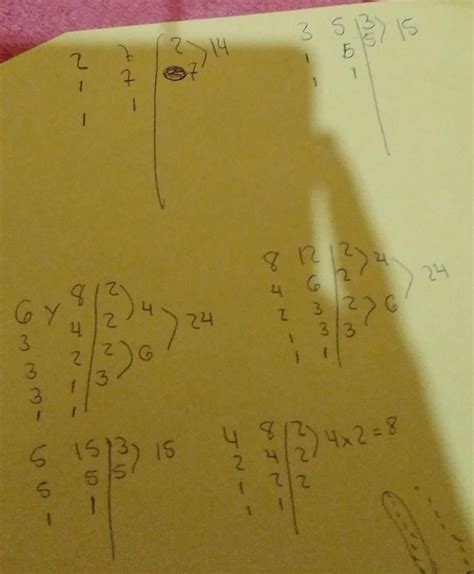 2 7 | 2 ) 14
1 7 | 7
1 1 |
3 5 | 3 ) 15
1 5 | 5
1 1 |
6 y 8 | 2 ) 4 ) 24
3 4 | 2
3 2 | 2 ) 6
3 1 | 3
1 1 |
8 12 | 2 ) 4 ) 24
4 6 | 2
2 3 | 2 ) 6
1 3 | 3
1 1 |
5 15 | 3 ) 15
5 5 | 5
1 1 |
4 8 | 2 ) 4x2=8
2 4 | 2
1 2 | 2
1 1 |